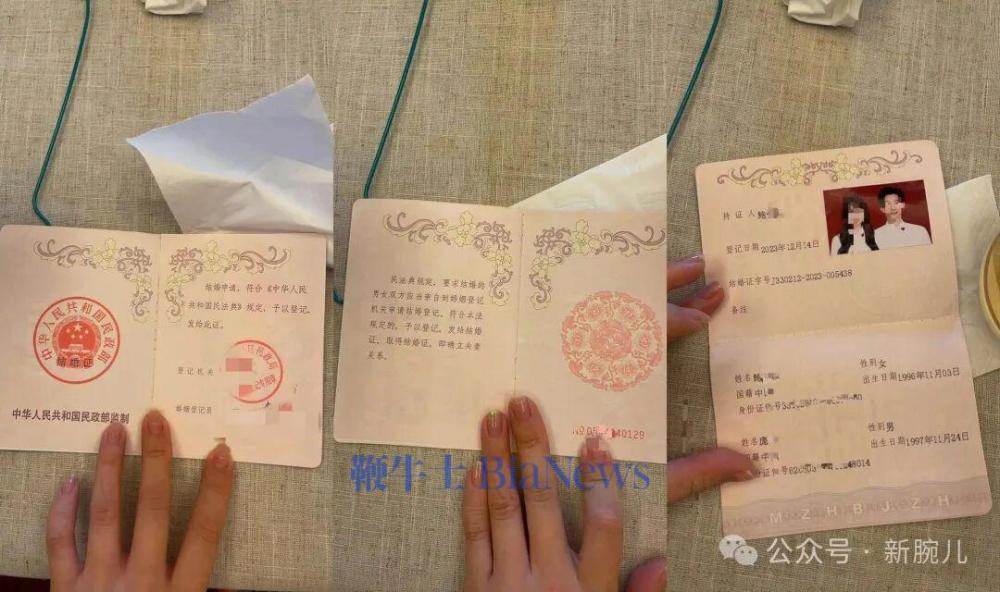 中华人民共和国民政部
结婚证
中华人民共和国民政部监制
结婚申请，符合《中华人民
共和国民法典》规定，予以登记，
发给此证。
登记机关
婚姻登记员
民法典规定，要求结婚的
男女双方应当亲自到婚姻登记
机关申请结婚登记。符合本法
规定的，予以登记，发给结婚
证。取得结婚证，即确立夫妻
关系。
鞭牛士 BiaNews
持证人
登记日期 2023年12月14日
结婚证字号 J330212-2023-005438
备注
姓名
性别 女
国籍 中
出生日期 1996年11月03日
身份证件号
姓名 庞
性别 男
国籍 中
出生日期 1997年11月24日
证件号
MZHBJZH
公众号 · 新腕儿